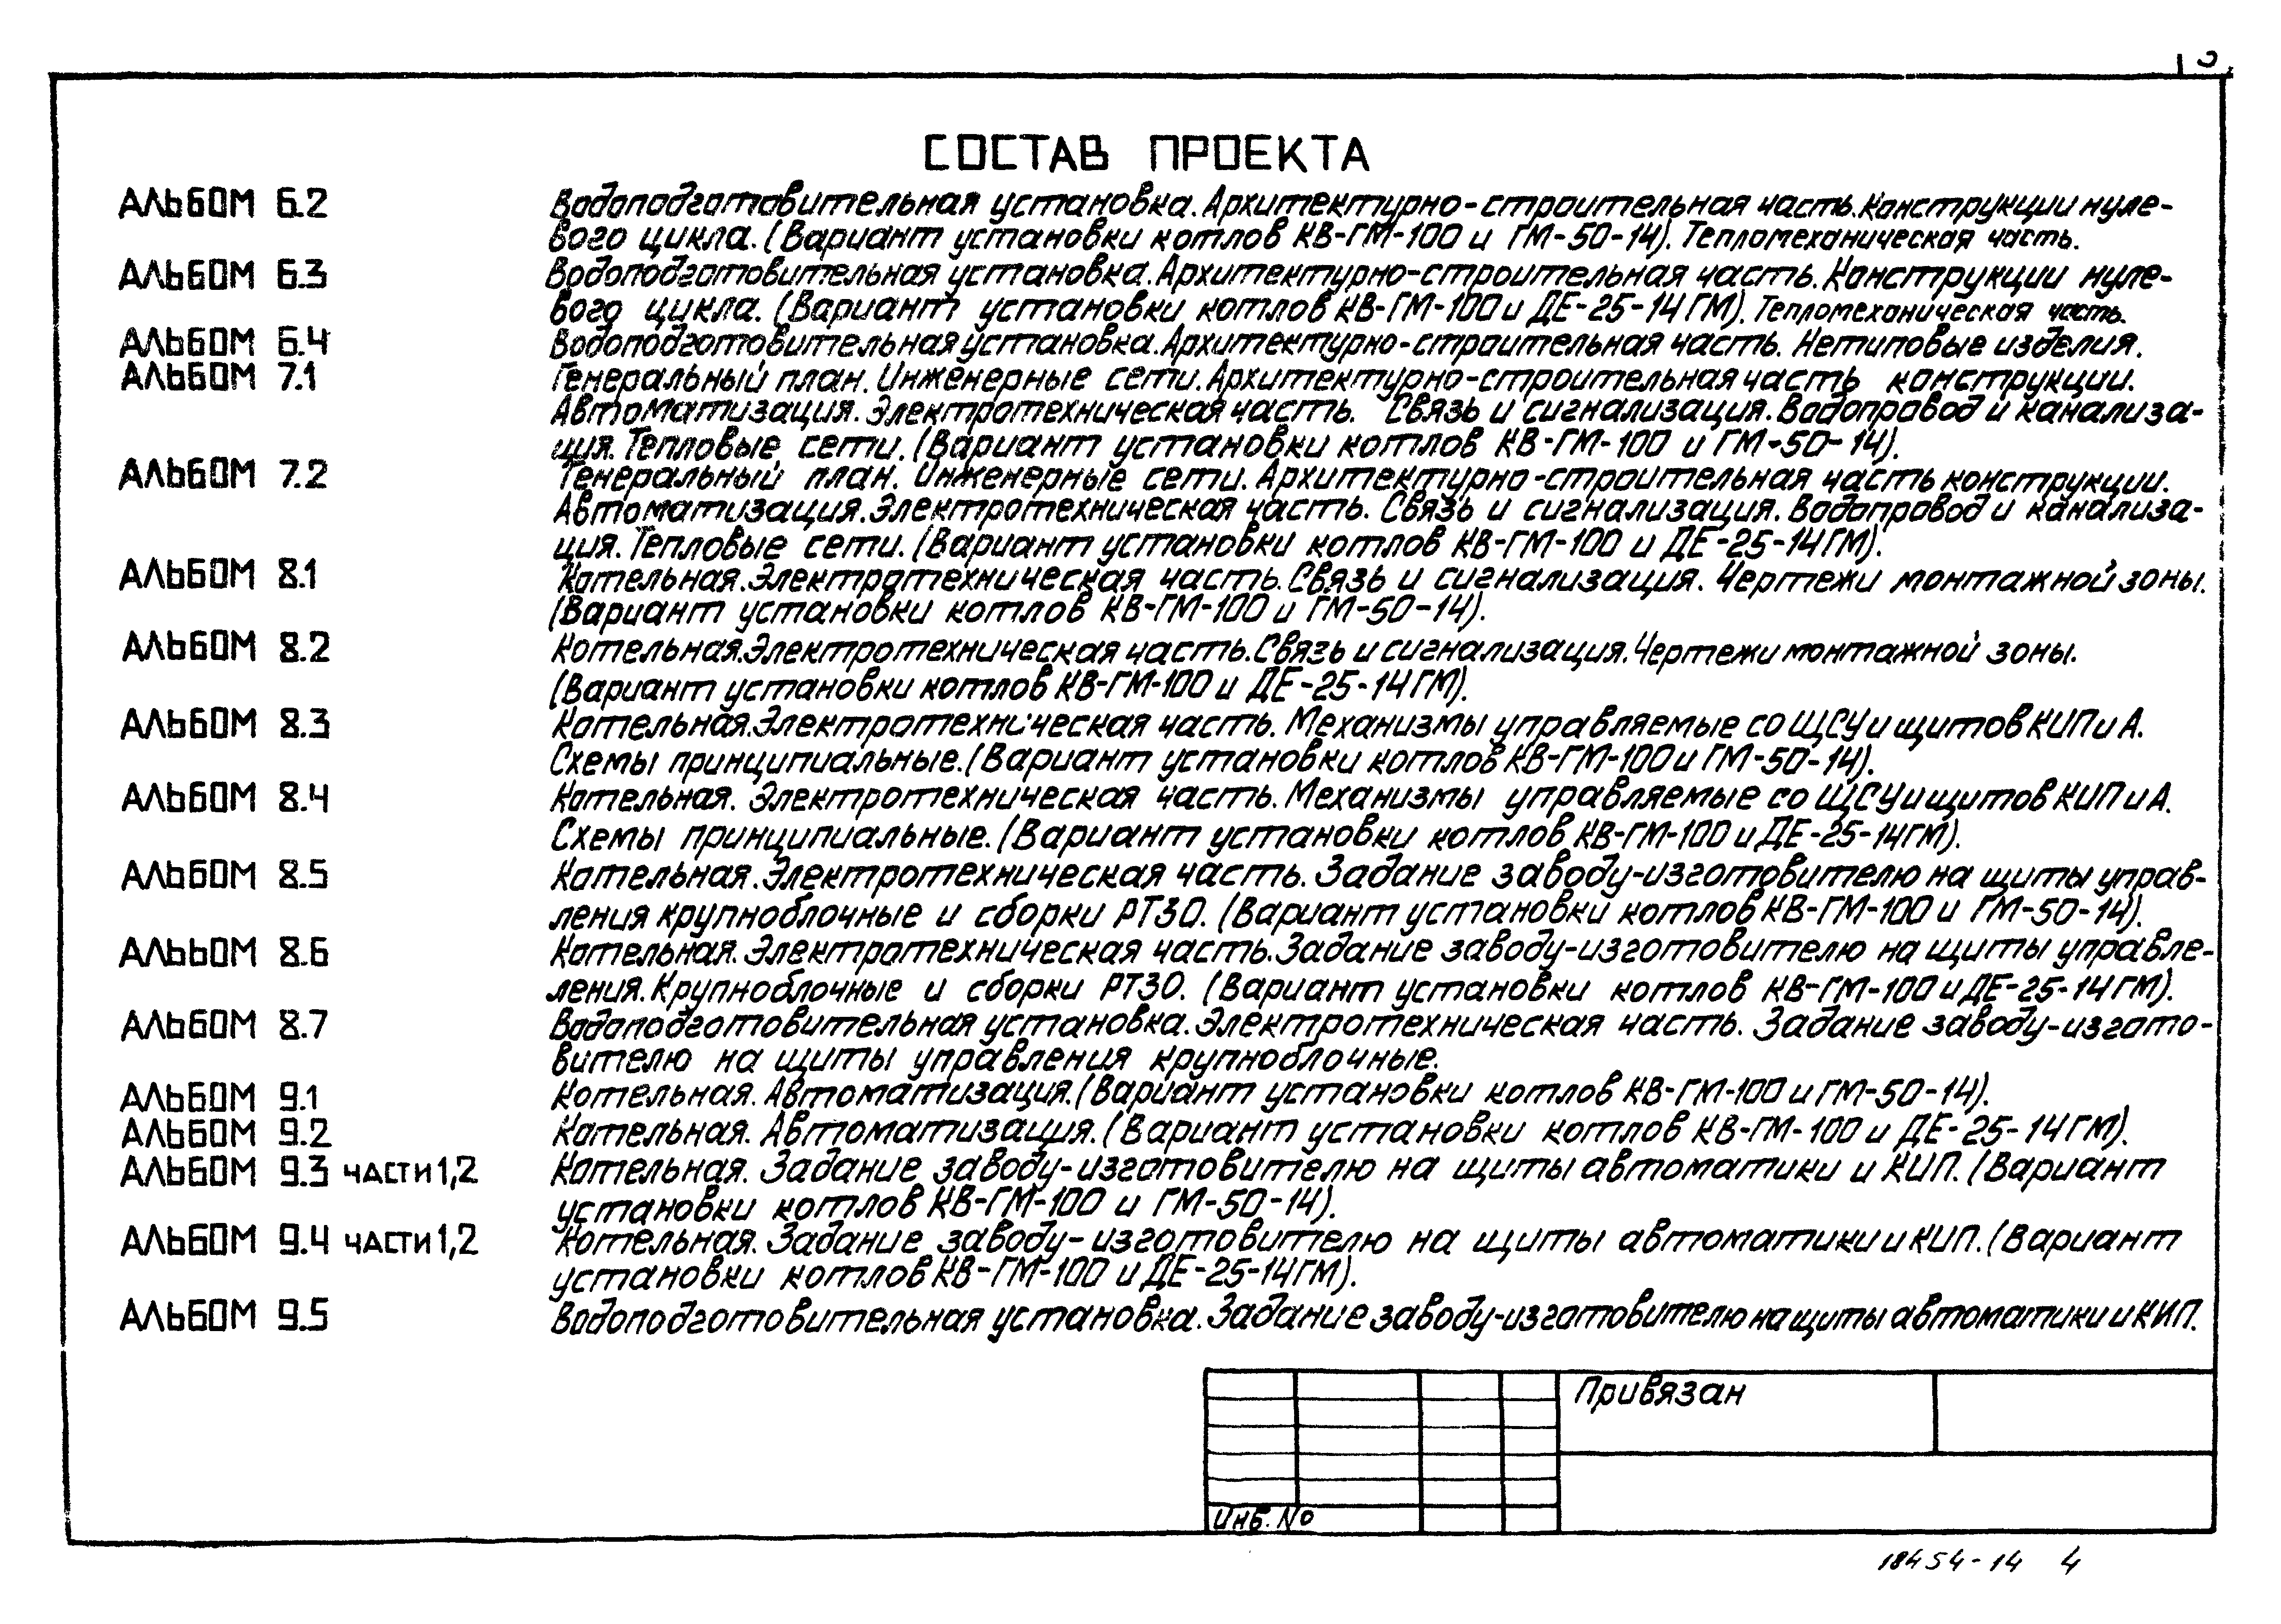 3
СОСТАВ ПРОЕКТА
АЛЬБОМ 6.2 Водоподготовительная установка. Архитектурно-строительная часть. Конструкции нуле-
вого цикла. (Вариант установки котлов КВ-ГМ-100 и ГМ-50-14). Тепломеханическая часть.
АЛЬБОМ 6.3 Водоподготовительная установка. Архитектурно-строительная часть. Конструкции нуле-
вого цикла. (Вариант установки котлов КВ-ГМ-100 и ДЕ-25-14ГМ). Тепломеханическая часть.
АЛЬБОМ 6.4 Водоподготовительная установка. Архитектурно-строительная часть. Нетиповые изделия.
АЛЬБОМ 7.1 Генеральный план. Инженерные сети. Архитектурно-строительная часть конструкции.
Автоматизация. Электротехническая часть. Связь и сигнализация. Водопровод и канализа-
ция. Тепловые сети. (Вариант установки котлов КВ-ГМ-100 и ГМ-50-14).
АЛЬБОМ 7.2 Генеральный план. Инженерные сети. Архитектурно-строительная часть конструкции.
Автоматизация. Электротехническая часть. Связь и сигнализация. Водопровод и канализа-
ция. Тепловые сети. (Вариант установки котлов КВ-ГМ-100 и ДЕ-25-14ГМ).
АЛЬБОМ 8.1 Котельная. Электротехническая часть. Связь и сигнализация. Чертежи монтажной зоны.
(Вариант установки котлов КВ-ГМ-100 и ГМ-50-14).
АЛЬБОМ 8.2 Котельная. Электротехническая часть. Связь и сигнализация. Чертежи монтажной зоны.
(Вариант установки котлов КВ-ГМ-100 и ДЕ-25-14ГМ).
АЛЬБОМ 8.3 Котельная. Электротехническая часть. Механизмы управляемые со ЩСУ и щитов КИП и А.
Схемы принципиальные. (Вариант установки котлов КВ-ГМ-100 и ГМ-50-14).
АЛЬБОМ 8.4 Котельная. Электротехническая часть. Механизмы управляемые со ЩСУ и щитов КИП и А.
Схемы принципиальные. (Вариант установки котлов КВ-ГМ-100 и ДЕ-25-14ГМ).
АЛЬБОМ 8.5 Котельная. Электротехническая часть. Задание заводу-изготовителю на щиты управ-
ления крупноблочные и сборки РТЗО. (Вариант установки котлов КВ-ГМ-100 и ГМ-50-14).
АЛЬБОМ 8.6 Котельная. Электротехническая часть. Задание заводу-изготовителю на щиты управле-
ления. Крупноблочные и сборки РТЗО. (Вариант установки котлов КВ-ГМ-100 и ДЕ-25-14ГМ).
АЛЬБОМ 8.7 Водоподготовительная установка. Электротехническая часть. Задание заводу-изгото-
вителю на щиты управления крупноблочные.
АЛЬБОМ 9.1 Котельная. Автоматизация. (Вариант установки котлов КВ-ГМ-100 и ГМ-50-14).
АЛЬБОМ 9.2 Котельная. Автоматизация. (Вариант установки котлов КВ-ГМ-100 и ДЕ-25-14ГМ).
АЛЬБОМ 9.3 ЧАСТИ 1,2 Котельная. Задание заводу-изготовителю на щиты автоматики и КИП. (Вариант
установки котлов КВ-ГМ-100 и ГМ-50-14).
АЛЬБОМ 9.4 ЧАСТИ 1,2 Котельная. Задание заводу-изготовителю на щиты автоматики и КИП. (Вариант
установки котлов КВ-ГМ-100 и ДЕ-25-14ГМ).
АЛЬБОМ 9.5 Водоподготовительная установка. Задание заводу-изготовителю на щиты автоматики и КИП.
Привязан
Инв. №
18454-14 4